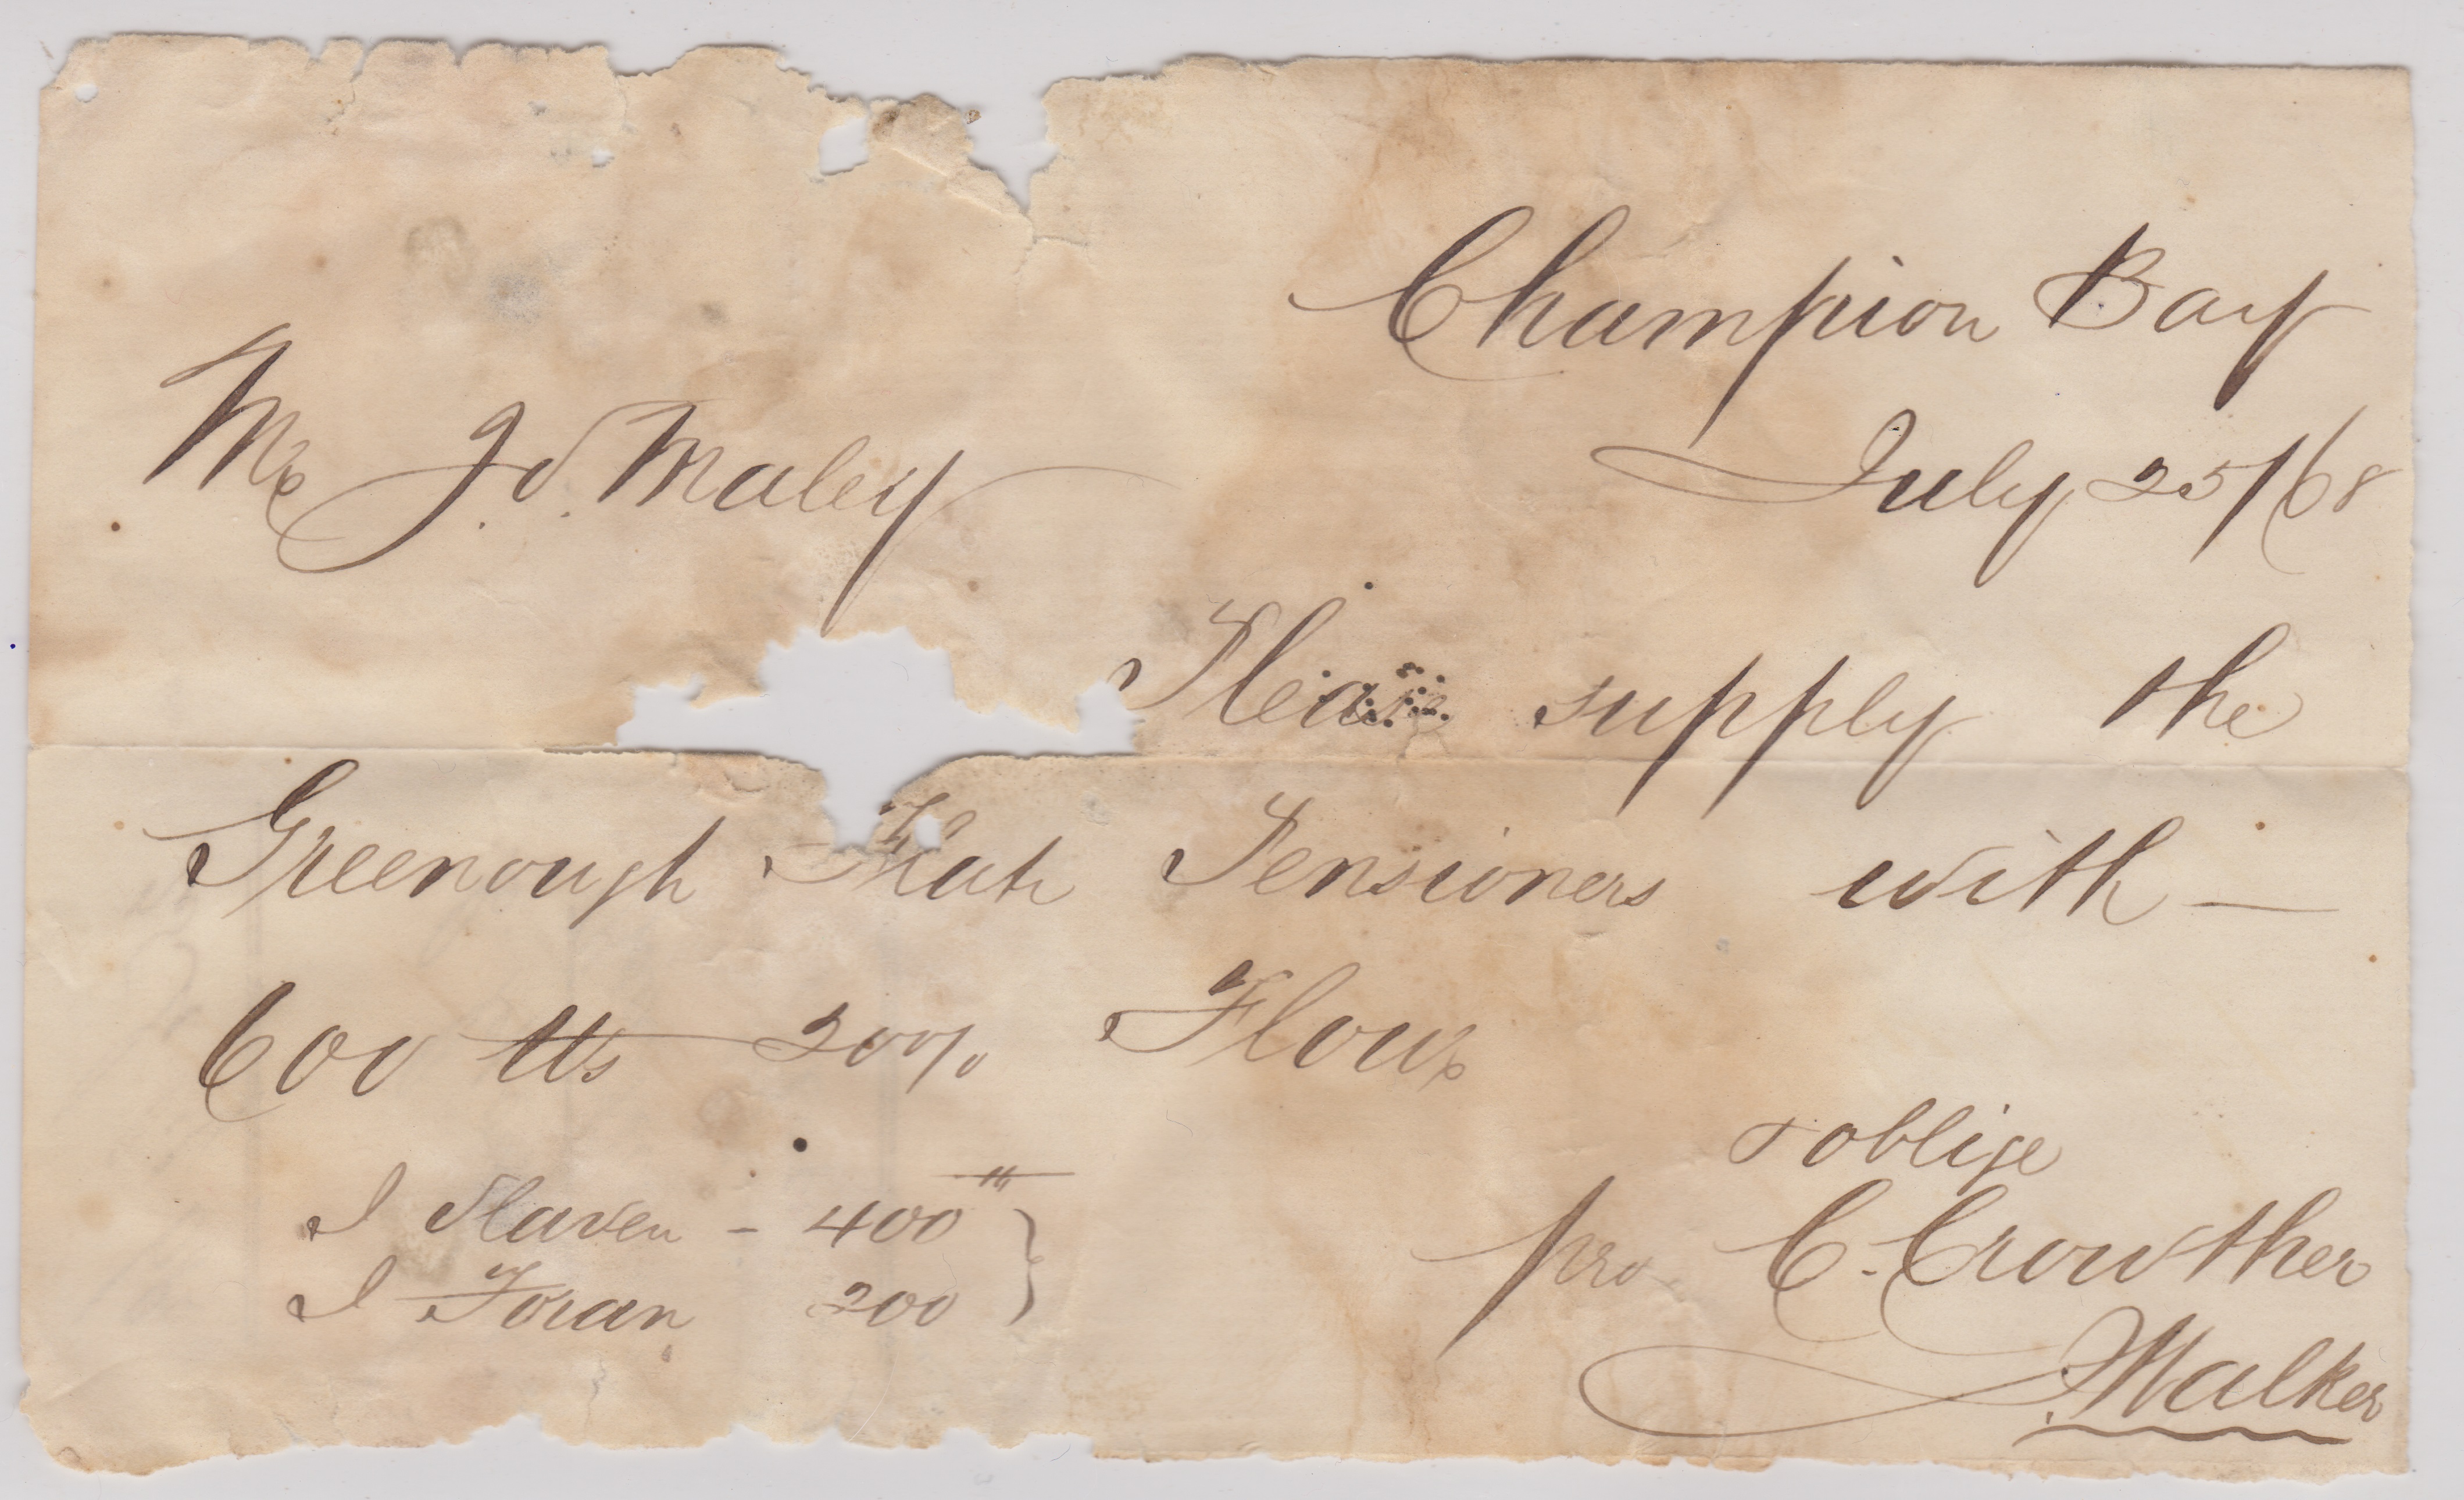 Champion Bay
July 25/68
Mr J. S. Maley
Please supply the
Greenough Flats Pensioners with —
600 lbs 20% Flour
& oblige
J Slaven - 400 lbs
J Foran 200
pro C. Crowther
Walker